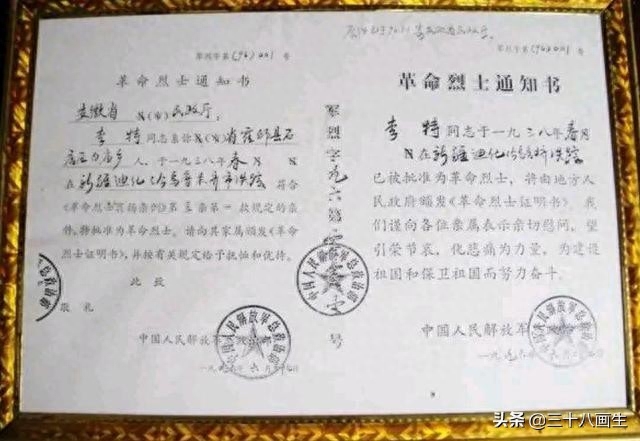 军烈字第(96)001号
革命烈士通知书
安徽省(市)民政厅:
李特同志系你省霍邱县石
人,于一九三八年春
在新疆迪化(今乌鲁木齐市)失踪 符合
《革命烈士褒扬条例》第三条第一款规定的条
件,特批准为革命烈士。请向其家属颁发《革命
烈士证明书》,并按有关规定给予抚恤和优待。
此致
敬礼
中国人民解放军
一九九六年六月
军烈字九六第
号
军烈字第(96)001号
革命烈士通知书
李特同志于一九三八年春月
在新疆迪化今乌鲁木齐失踪
已被批准为革命烈士,将由地方人
民政府颁发《革命烈士证明书》。我
们谨向各位亲属表示亲切慰问,望
引荣节哀,化悲痛为力量,为建设
祖国和保卫祖国而努力奋斗。
中国人民解放军
一九九六年六月
中国人民解放军总政治部
头条 @三十八画生